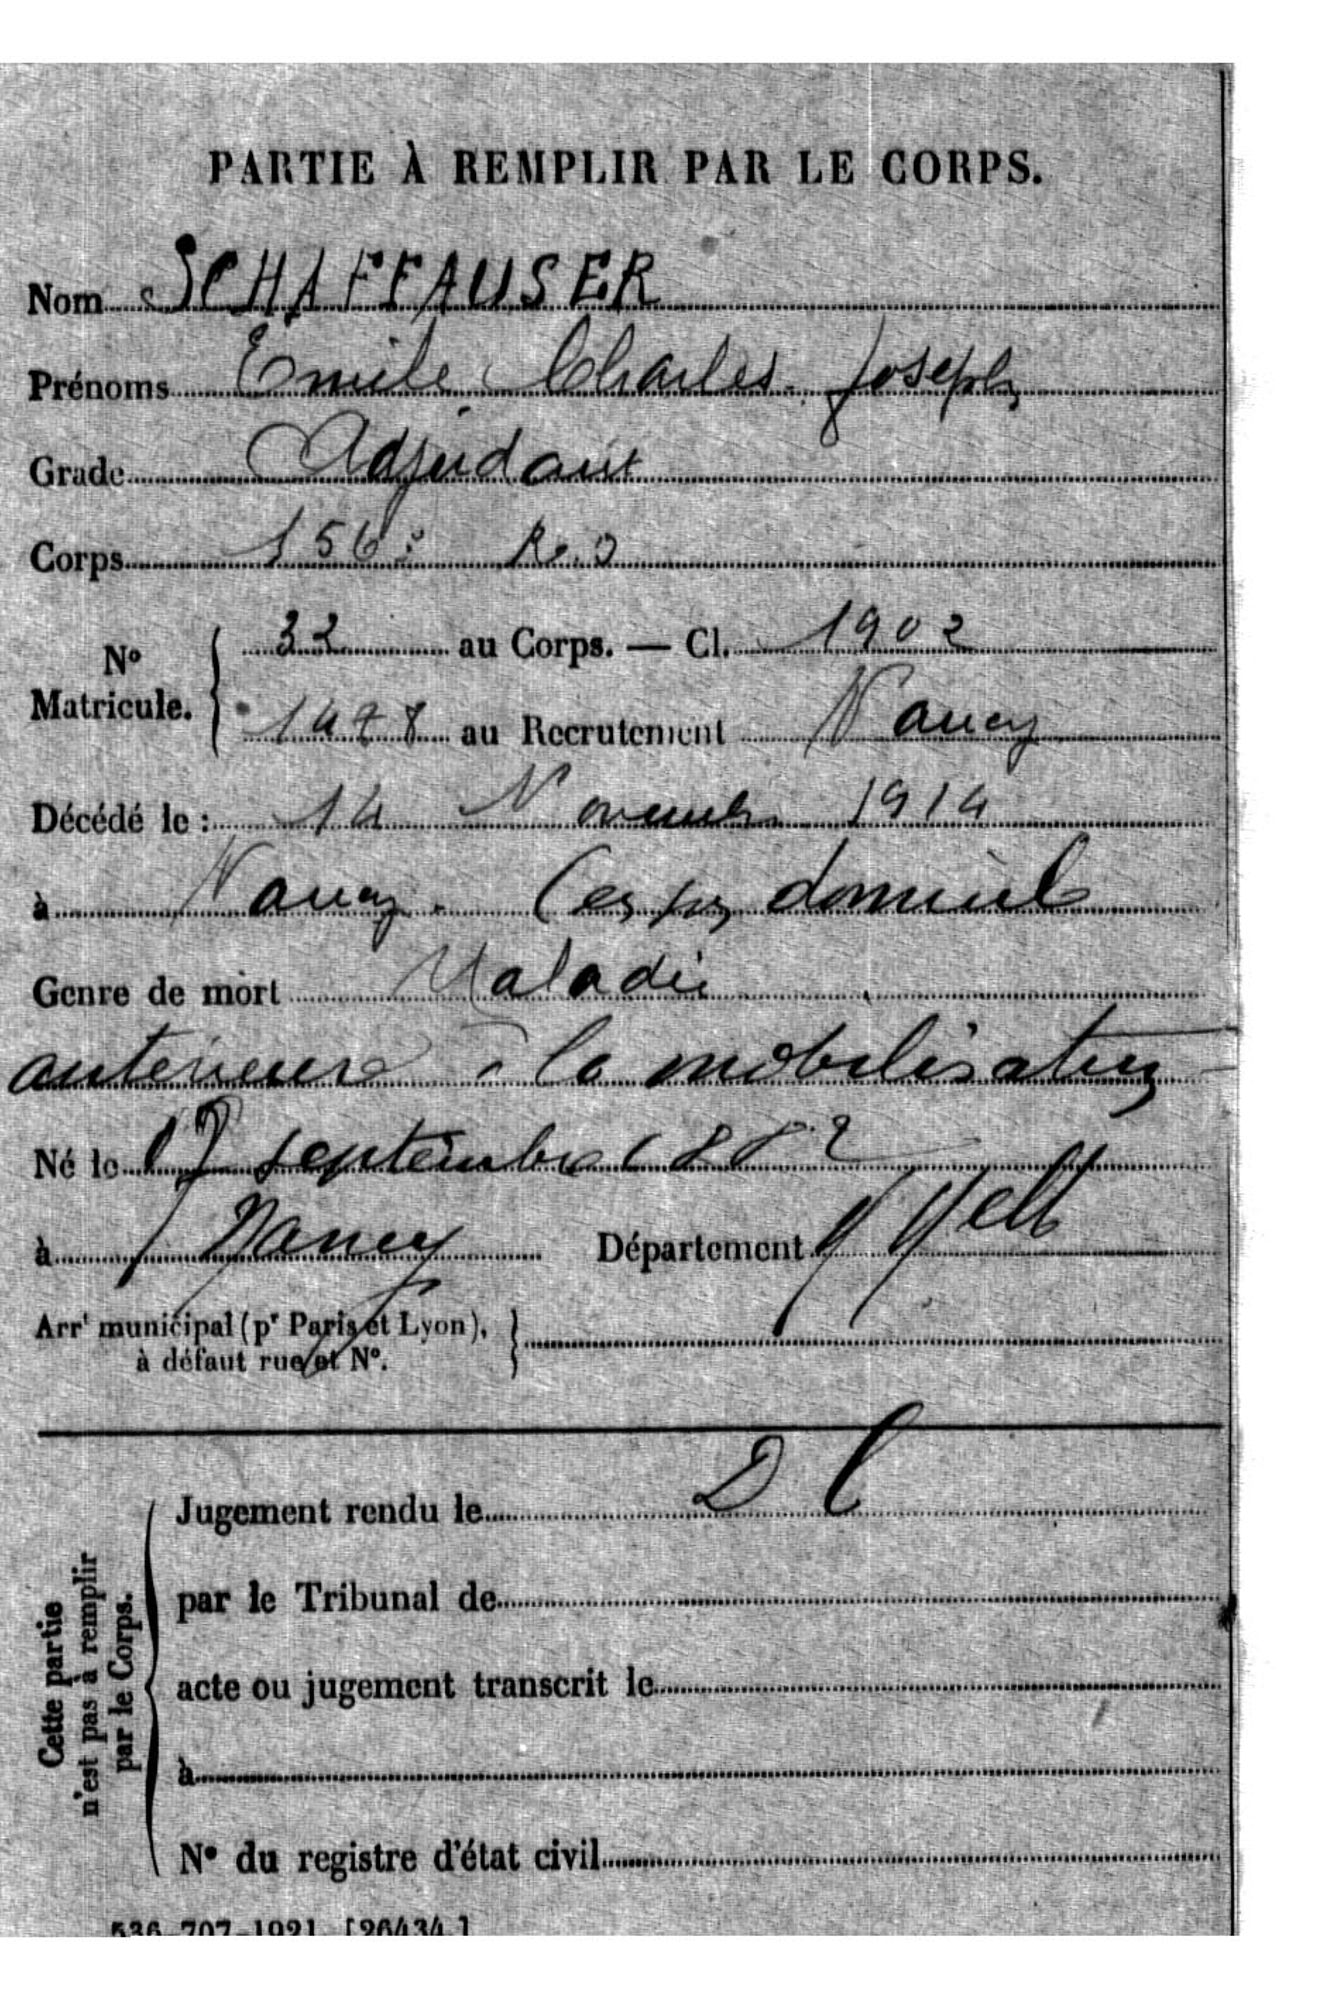 PARTIE À REMPLIR PAR LE CORPS.
Nom SCHAFFAUSER
Prénoms Emile Charles Joseph
Grade Adjudant
Corps 156e R.I
No Matricule. 32 au Corps. — Cl. 1902
1478 au Recrutement Nancy
Décédé le : 14 Novembre 1914
à Nancy. domicile
Genre de mort Maladie
antérieure à la mobilisation
Né le 17 septembre 1882
à Nancy Département
Arrt municipal (pr Paris et Lyon),
à défaut rue et No.
Jugement rendu le
par le Tribunal de
acte ou jugement transcrit le
à
No du registre d'état civil
Cette partie
n'est pas à remplir
par le Corps.
536-707-1921. [26434.]